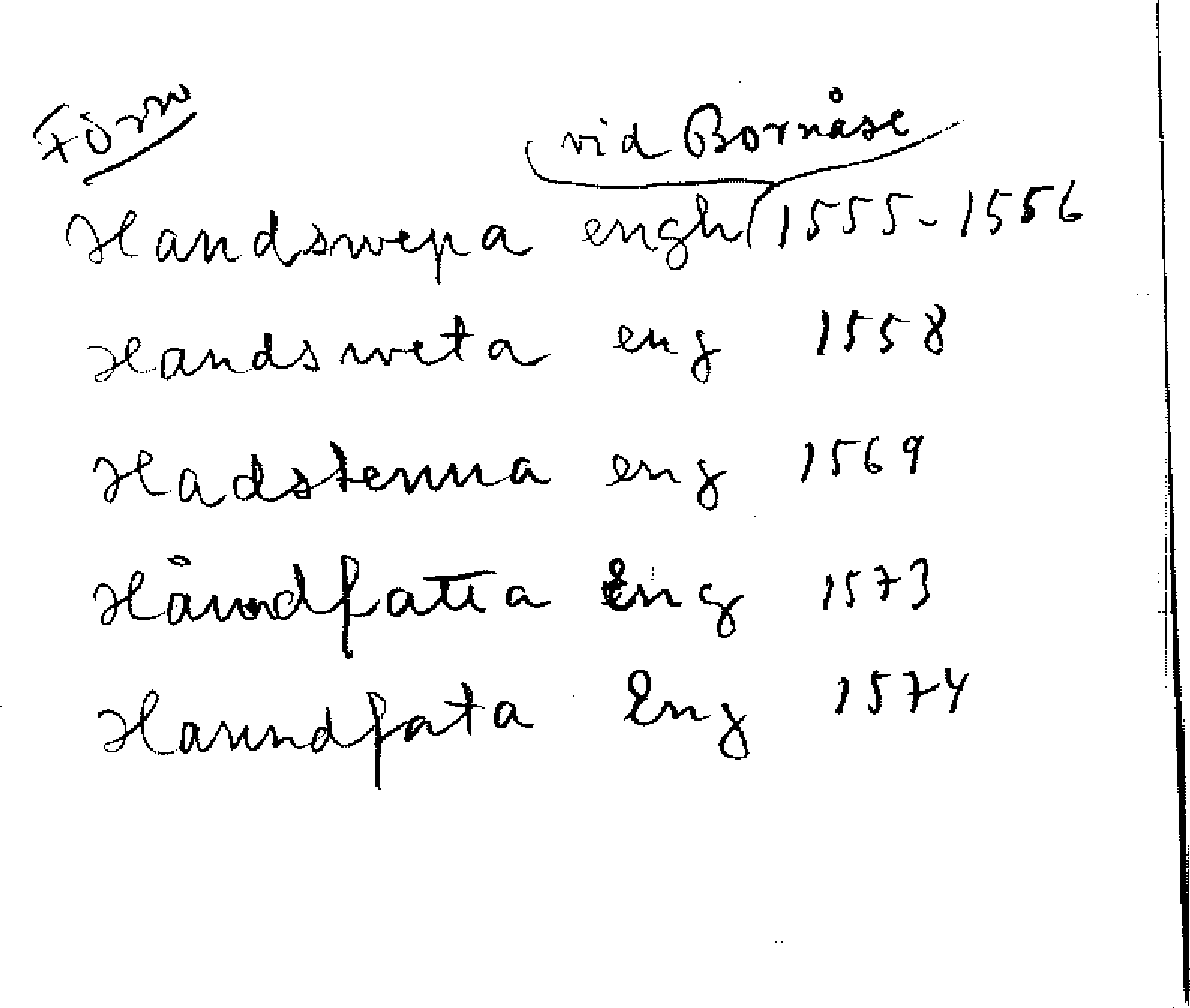 Förn
vid Bornåse
Handswepa engh 1555-1556
Handsweta eng 1558
Hadstenna eng 1569
Håundfatta Eng 1573
Haundfata Eng 1574